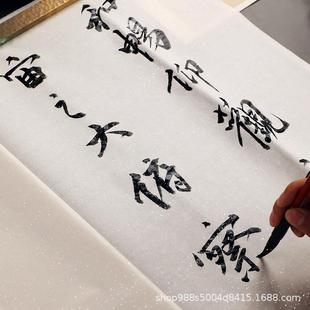 暢仰觀
宙之大俯察
shop988s5004d8415.1688.com